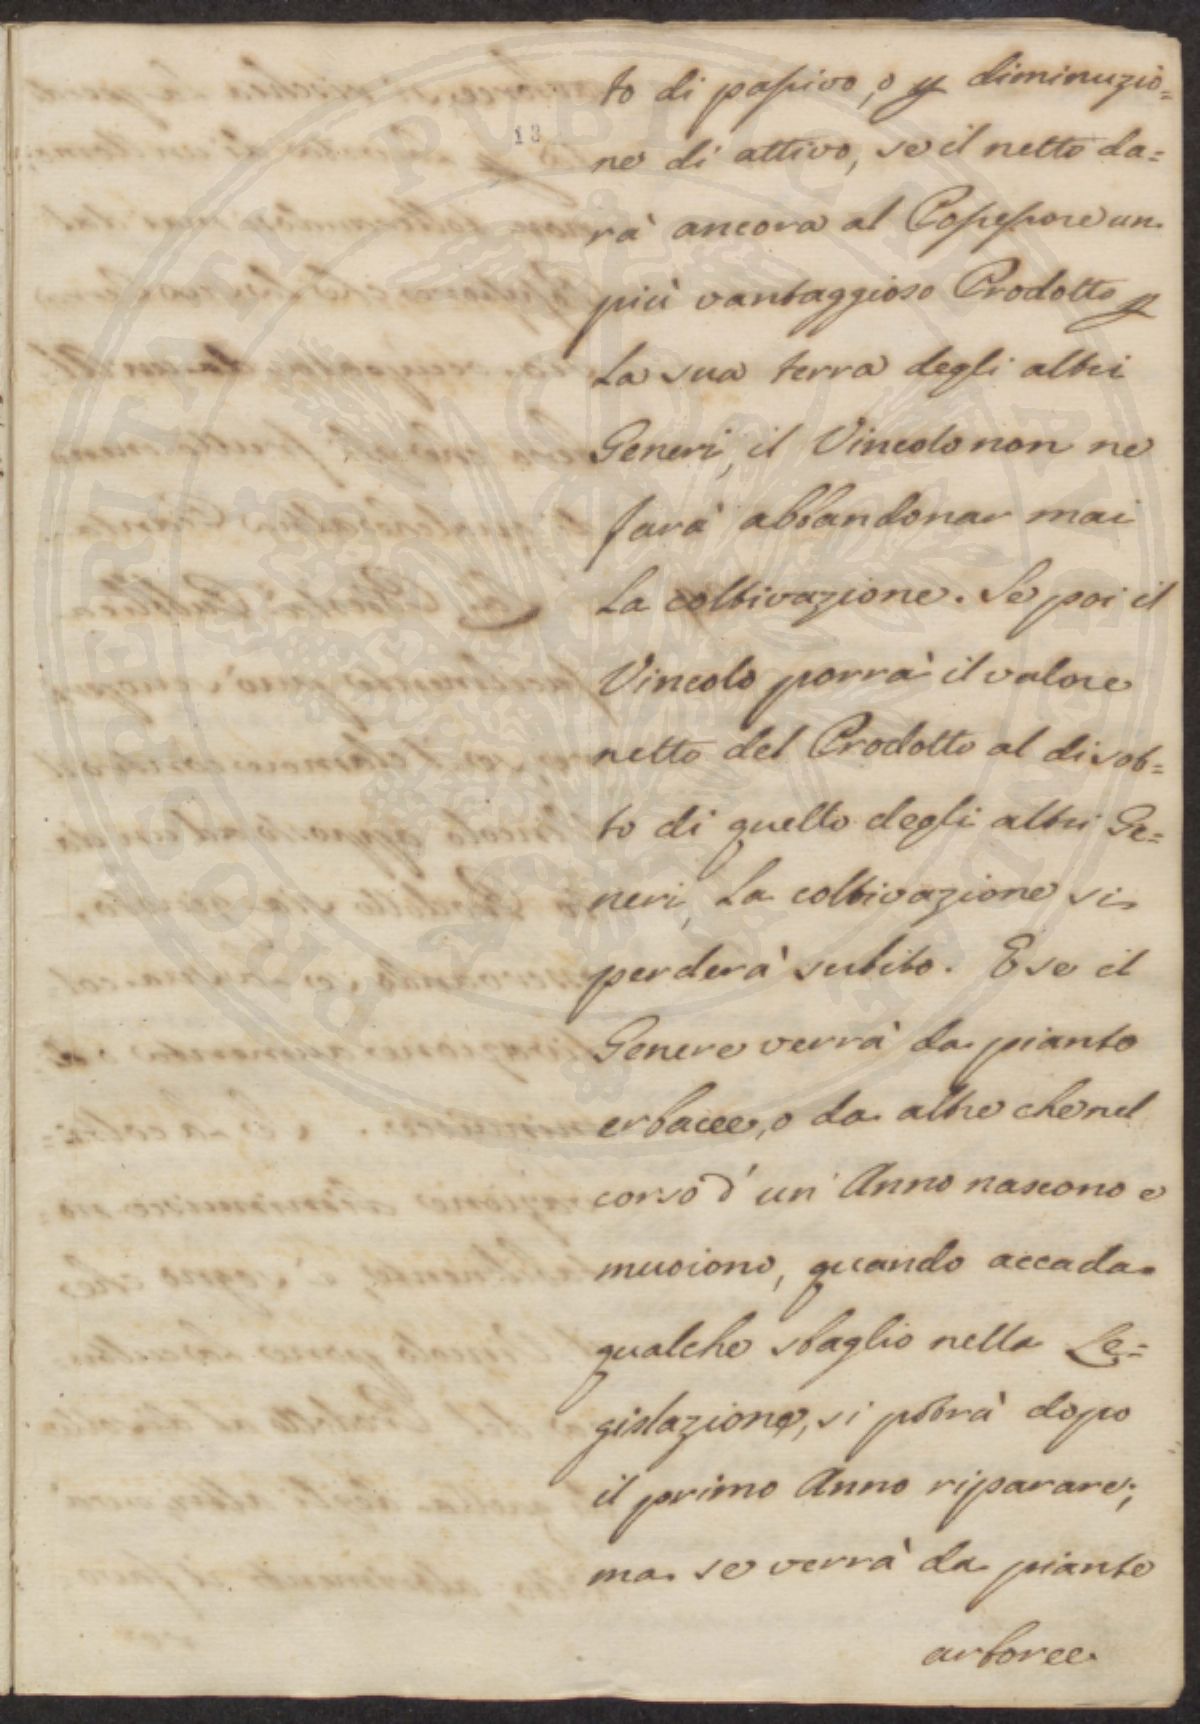 13
to di passivo, o p diminuzio=
ne di attivo, se il netto da=
rà ancora al Possessore un
più vantaggioso Prodotto p
la sua terra degli altri
Generi, il Vincolo non ne
farà abbandonar mai
la coltivazione. Se poi il
Vincolo porrà il valore
netto del Prodotto al di sot=
to di quello degli altri Ge=
neri, la coltivazione si
perderà subito. E se il
Genere verrà da piante
erbacee, o da altre che nel
corso d'un Anno nascono e
muoiono, quando accada
qualche sbaglio nella Le=
gislazione, si potrà dopo
il primo Anno riparare;
ma se verrà da piante
arboree
PROSPERITATI PUBLICAE AUGENDAE